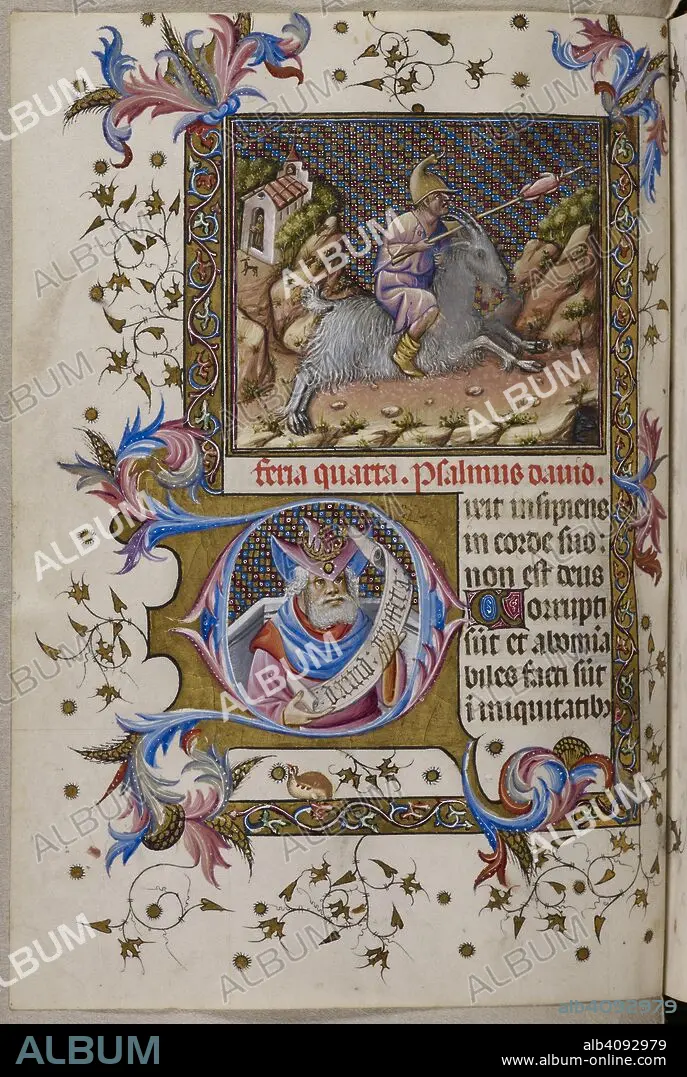 feria quarta. Psalmus david.
Dixit insipiens
in corde suo:
non est deus
Corrupti
sūt et abomīa
biles facti sūt
ī iniquitatibꝫ
ALBUM
alb4092979
ALBUM
alb4092979
www.album-online.com